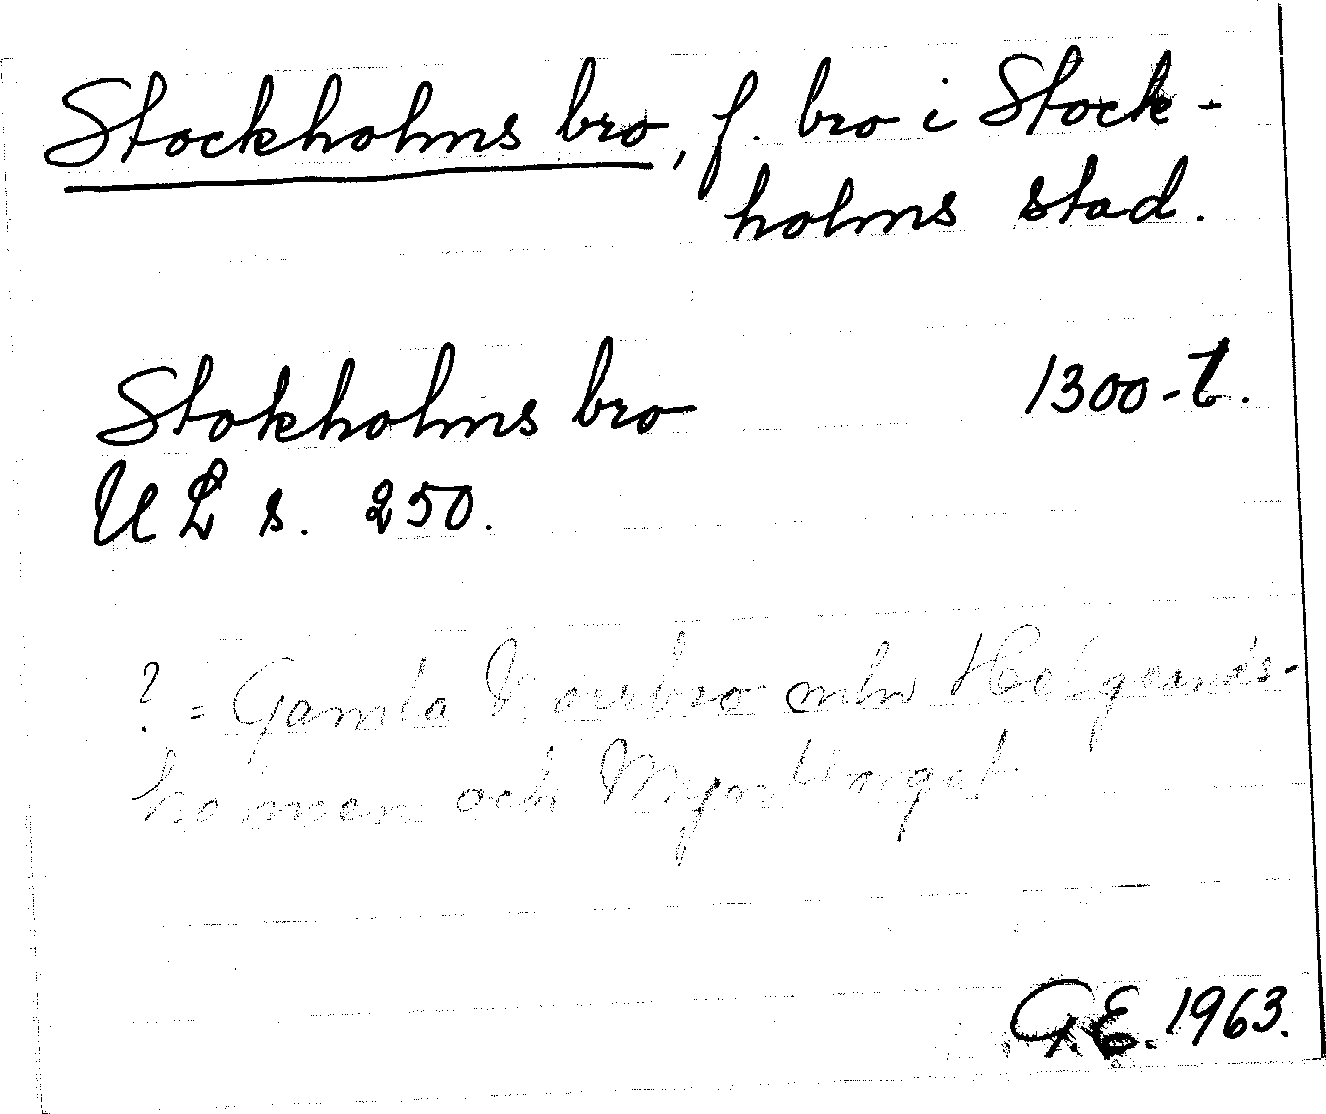 Stockholms bro, f. bro i Stock-
holms stad.
Stokholms bro 1300-t.
UL s. 250.
? = Gamla Norrbro mln Helgeands-
holmen och Myntorget
G.E. 1963.